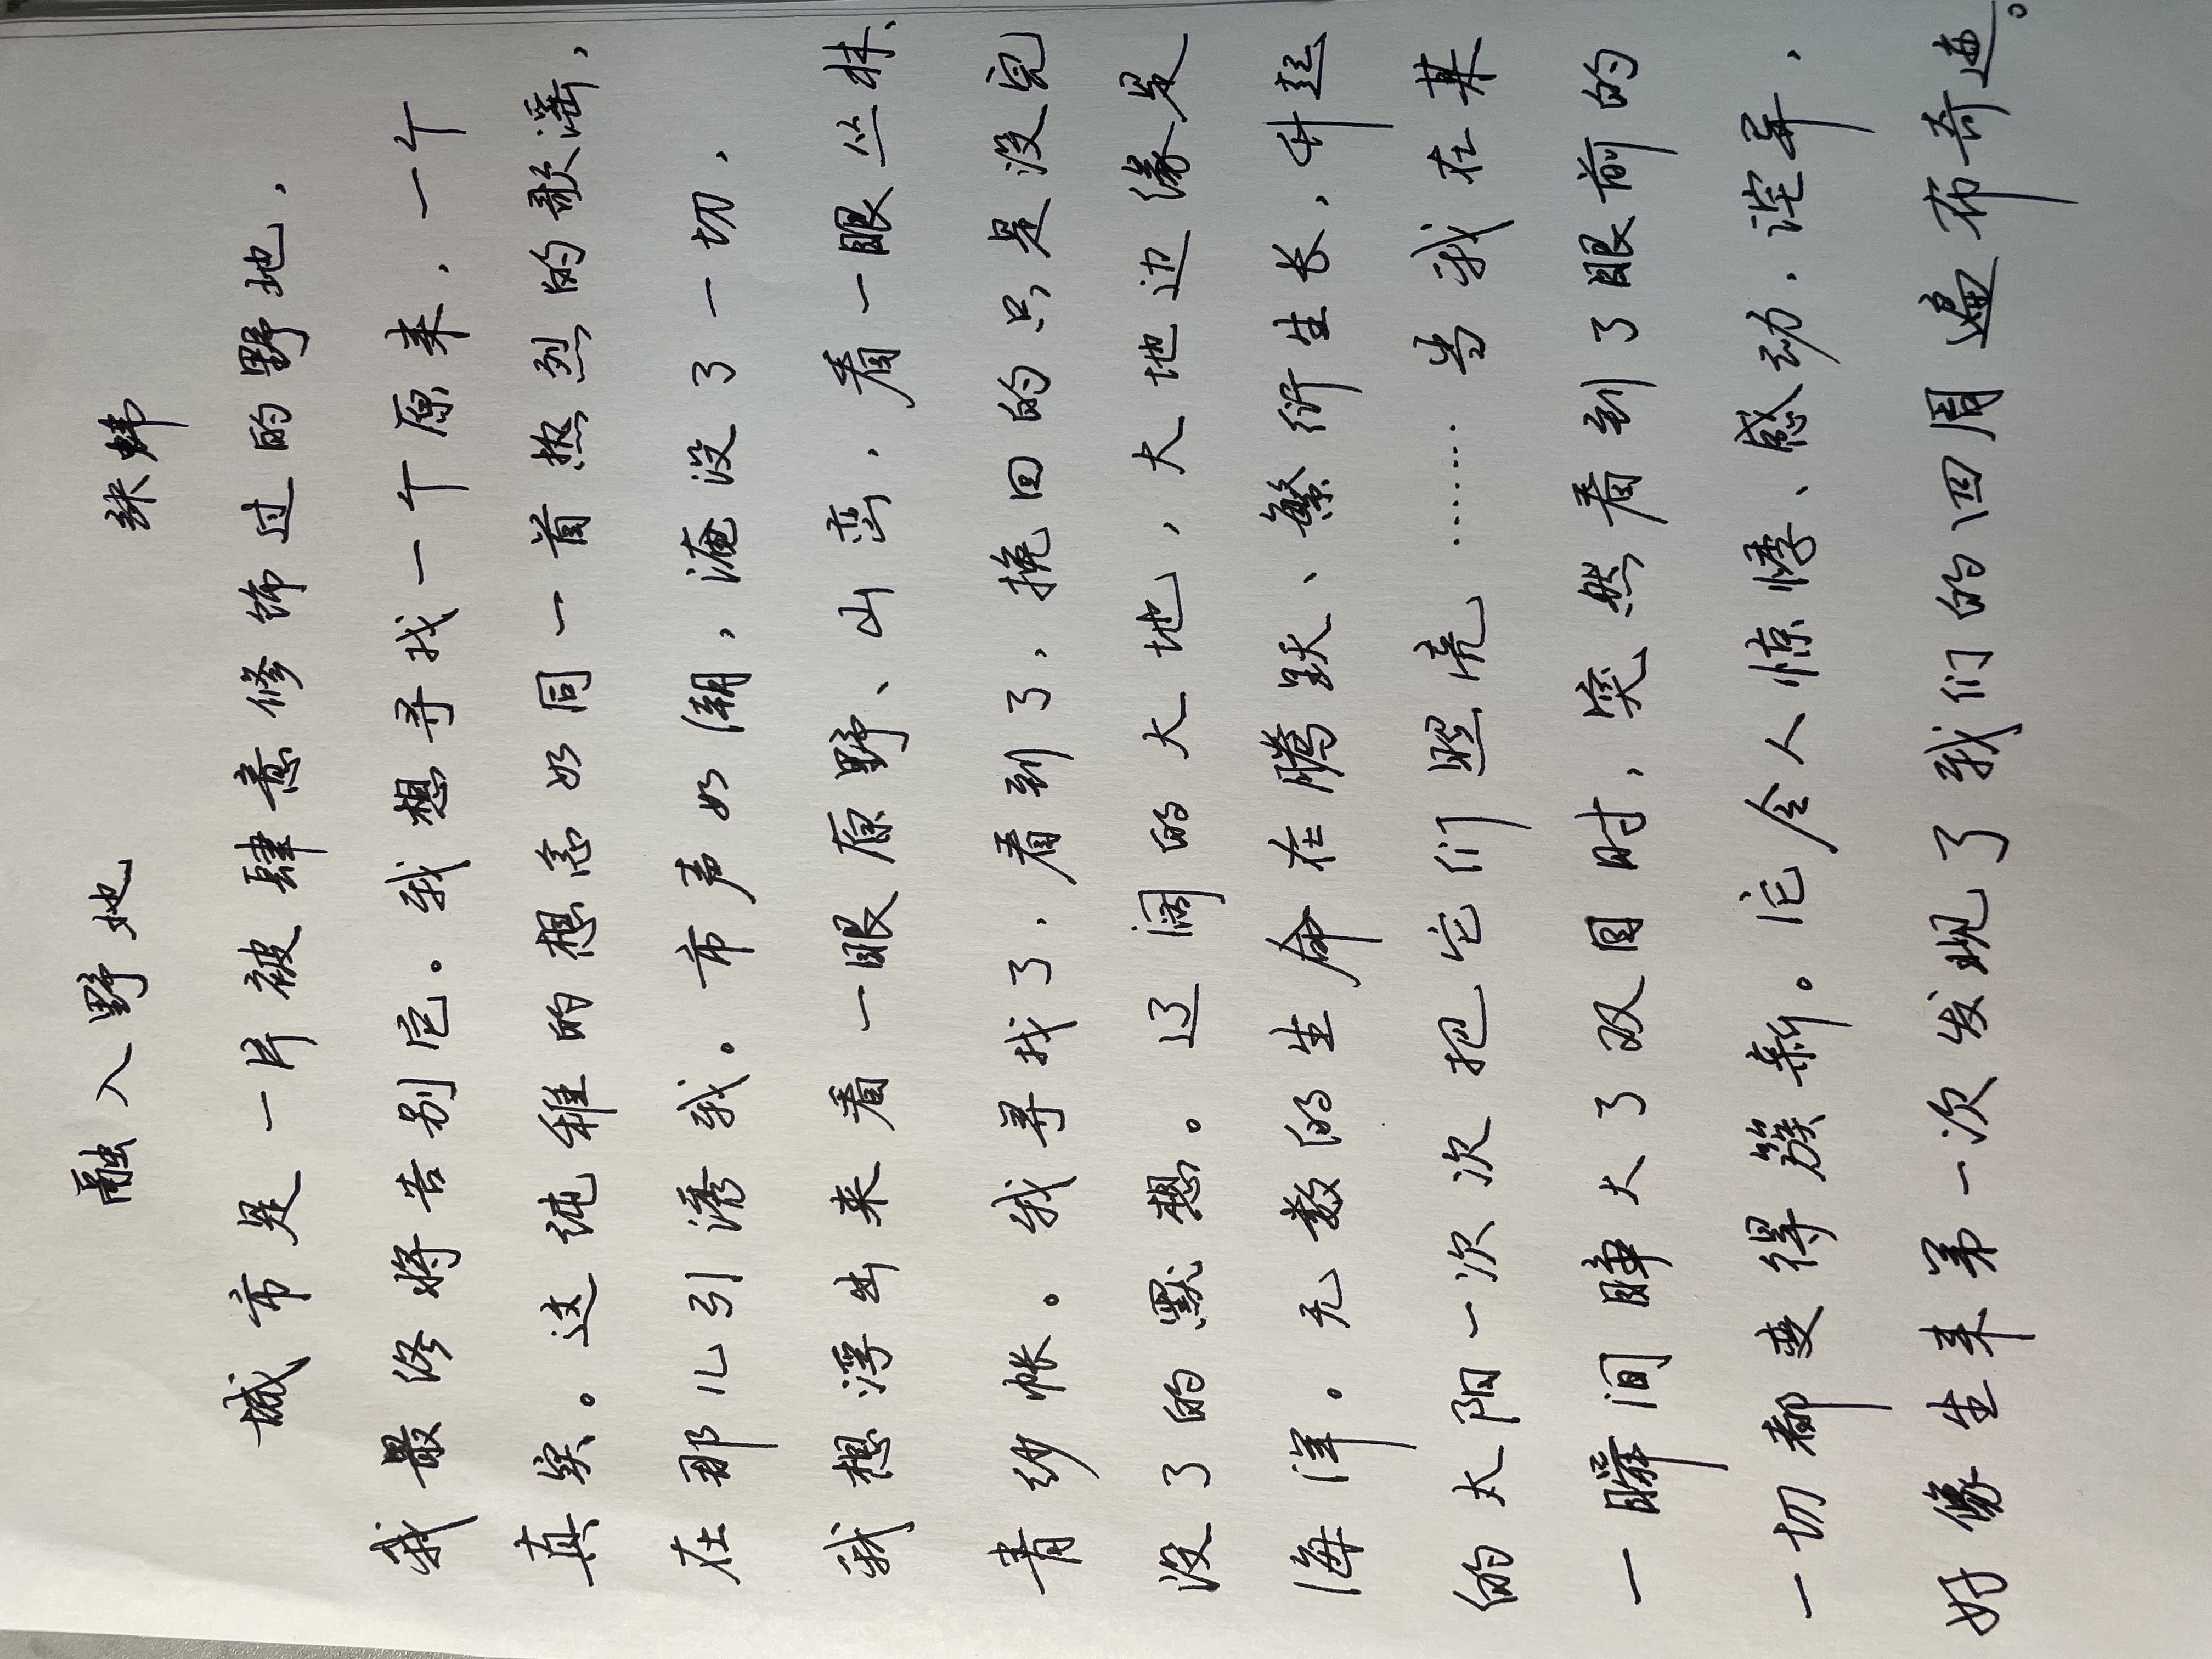 融入野地 张炜
城市是一片被肆意修饰过的野地，
我最终将告别它。我想寻找一个原来，一个
真实。这纯稚的想念如同一首热烈的歌谣，
在那儿引诱我。市声如潮，淹没了一切，
我想浮出来看一眼原野、山峦，看一眼丛林、
青纱帐。我寻找了，看到了，挽回的只是没完
没了的默想。辽阔的大地，大地边缘是
海洋。无数的生命在腾跃、繁衍生长，升起
的太阳一次次把它们照亮……当我在某
一瞬间睁大了双目时，突然看到了眼前的
一切都变得簇新。它令人惊悸、感动，诧异，
好像生来第一次发现了我们的四周遍布奇迹。